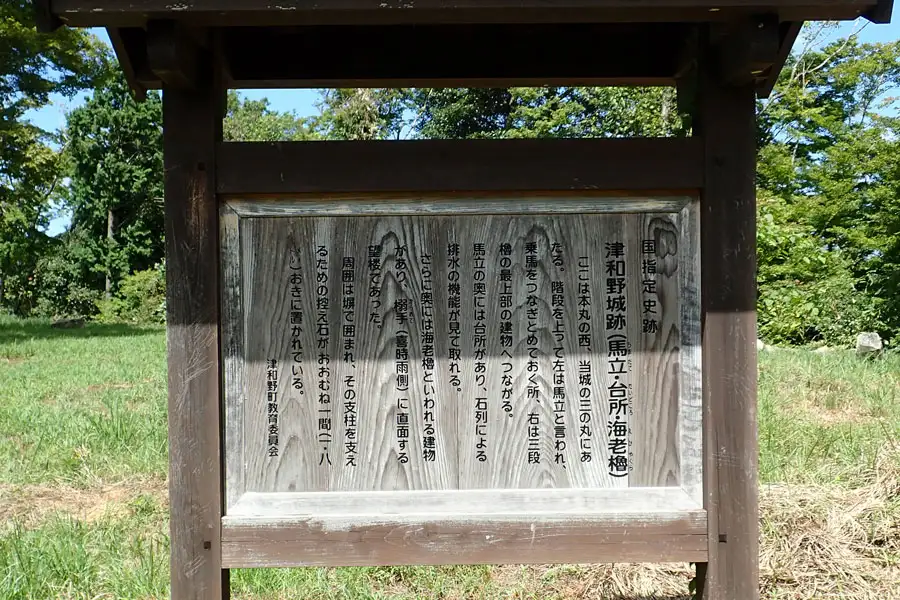 国指定史跡
津和野城跡(馬立・台所・海老櫓)
ここは本丸の西、当城の三の丸にあ
たる。階段を上って左は馬立と言われ、
乗馬をつなぎとめておく所、右は三段
櫓の最上部の建物へつながる。
馬立の奥には台所があり、石列による
排水の機能が見て取れる。
さらに奥には海老櫓といわれる建物
があり、搦手(喜時雨側)に直面する
望楼であった。
周囲は塀で囲まれ、その支柱を支え
るための控え石がおおむね一間(一・八
)おきに置かれている。
津和野町教育委員会